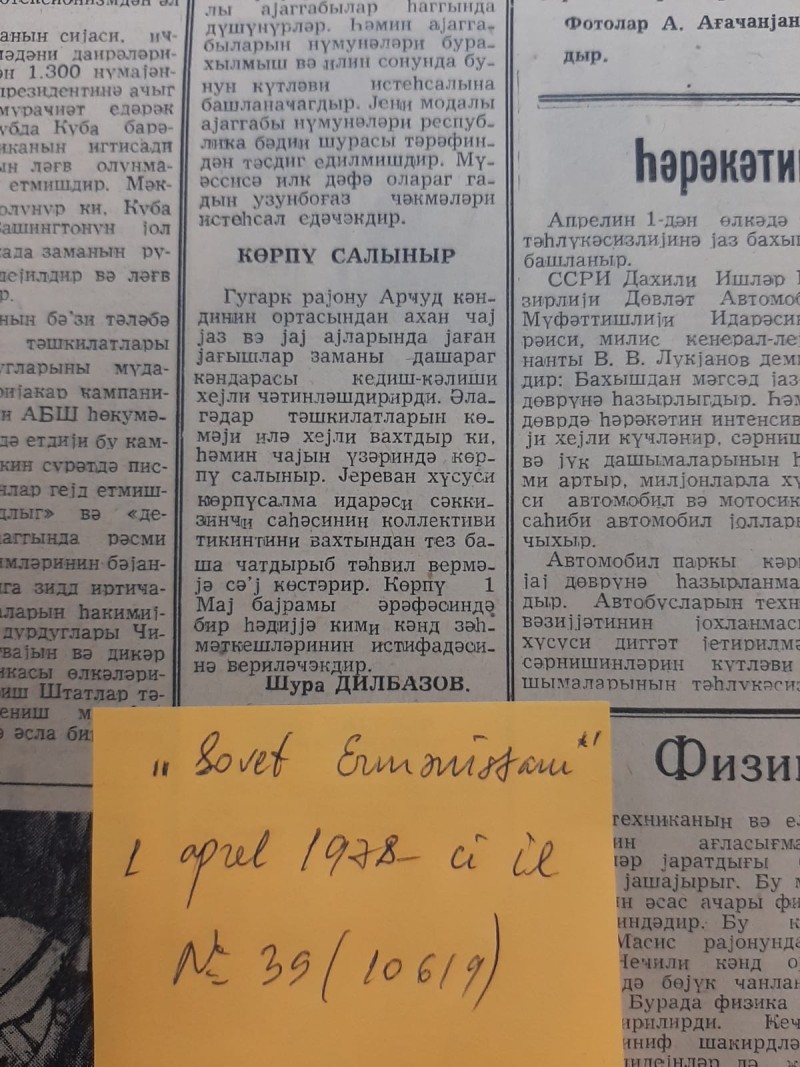 анын сијаси, ич-
мәдәни даирәләри-
н 1.300 нүмајән-
президентинә ачыг
мурачиәт едәрәк
Куба барә-
иканын игтисади
ын ләғв олунма-
етмишдир. Мәк-
олунур ки, Куба
Вашингтонун јол
сада заманын рү-
дејилдир вә ләғв
р.
нын бә'зи тәләбә
тәшкилатлары
угларыны мүда-
ријакар кампани-
н АБШ һөкумә-
дә етдији бу кам-
кин сурәтдә пис-
нлар гејд етмиш-
длыг» вә «де-
аггында рәсми
имләринин бәјан-
га зидд иртича-
ларын һакимиј-
дурдуглары Чи-
вајын вә дикәр
икасы өлкәләри-
иш Штатлар тә-
ениш
ә әсла
лы ајаггабылар һаггында
дүшүнүрләр. Һәмин ајагга-
быларын нүмунәләри бура-
хылмыш вә илин сонунда бу-
нун күтләви истеһсалына
башланачагдыр. Јени модалы
ајаггабы нүмунәләри респуб-
лика бәдии шурасы тәрәфин-
дән тәсдиг едилмишдир. Мү-
әссисә илк дәфә олараг га-
дын узунбоғаз чәкмәләри
истеһсал едәчәкдир.
КӨРПҮ САЛЫНЫР
Гугарк рајону Арчуд кән-
динин ортасындан ахан чај
јаз вә јај ајларында јаған
јағышлар заманы дашараг
кәндарасы кедиш-кәлиши
хејли чәтинләшдирирди. Әла-
гәдар тәшкилатларын кө-
мәји илә хејли вахтдыр ки,
һәмин чајын үзәриндә көр-
пү салыныр. Јереван хүсуси
көрпүсалма идарәси сәкки-
зинчи саһәсинин коллективи
тикинтини вахтындан тез ба-
ша чатдырыб тәһвил вермә-
јә сә'ј көстәрир. Көрпү 1
Мај бајрамы әрәфәсиндә
бир һәдијјә кими кәнд зәһ-
мәткешләринин истифадәси-
нә вериләчәкдир.
Шура ДИЛБАЗОВ.
Фотолар А. Ағачанјан
дыр.
Һәрәкәти
Апрелин 1-дән өлкәдә
тәһлүкәсизлијинә јаз бахы
башланыр.
ССРИ Дахили Ишләр
зирлији Дөвләт Автомоб
Мүфәттишлији Идарәсин
рәиси, милис кенерал-ле
нанты В. В. Лукјанов деми
дир: Бахышдан мәгсәд јаз
дөврүнә һазырлыгдыр. Һәм
дөврдә һәрәкәтин интенсив
ји хејли күчләнир, сәрниш
вә јүк дашымаларынын һ
ми артыр, милјонларла хү
си автомобил вә мотосик
саһиби автомобил јоллары
чыхыр.
Автомобил паркы
јај дөврүнә һазырланма
дыр. Автобусларын техн
вәзијјәтинин јохланмас
хүсуси диггәт јетирилмә
сәрнишинләрин күтләви
шымаларынын тәһлүкәсиз
Физи
техниканын вә
ин ағласығма
ләр јаратдығы
јашајырыг. Бу
ын әсас ачары фи
индәдир. Бу
Масис рајонунд
Нечили кәнд
дә бөјүк
Бурада физика
ирилирди.
синиф шакирдлә
„Sovet Ermənistanı"
1 aprel 1978-ci il
№ 39 (10619)